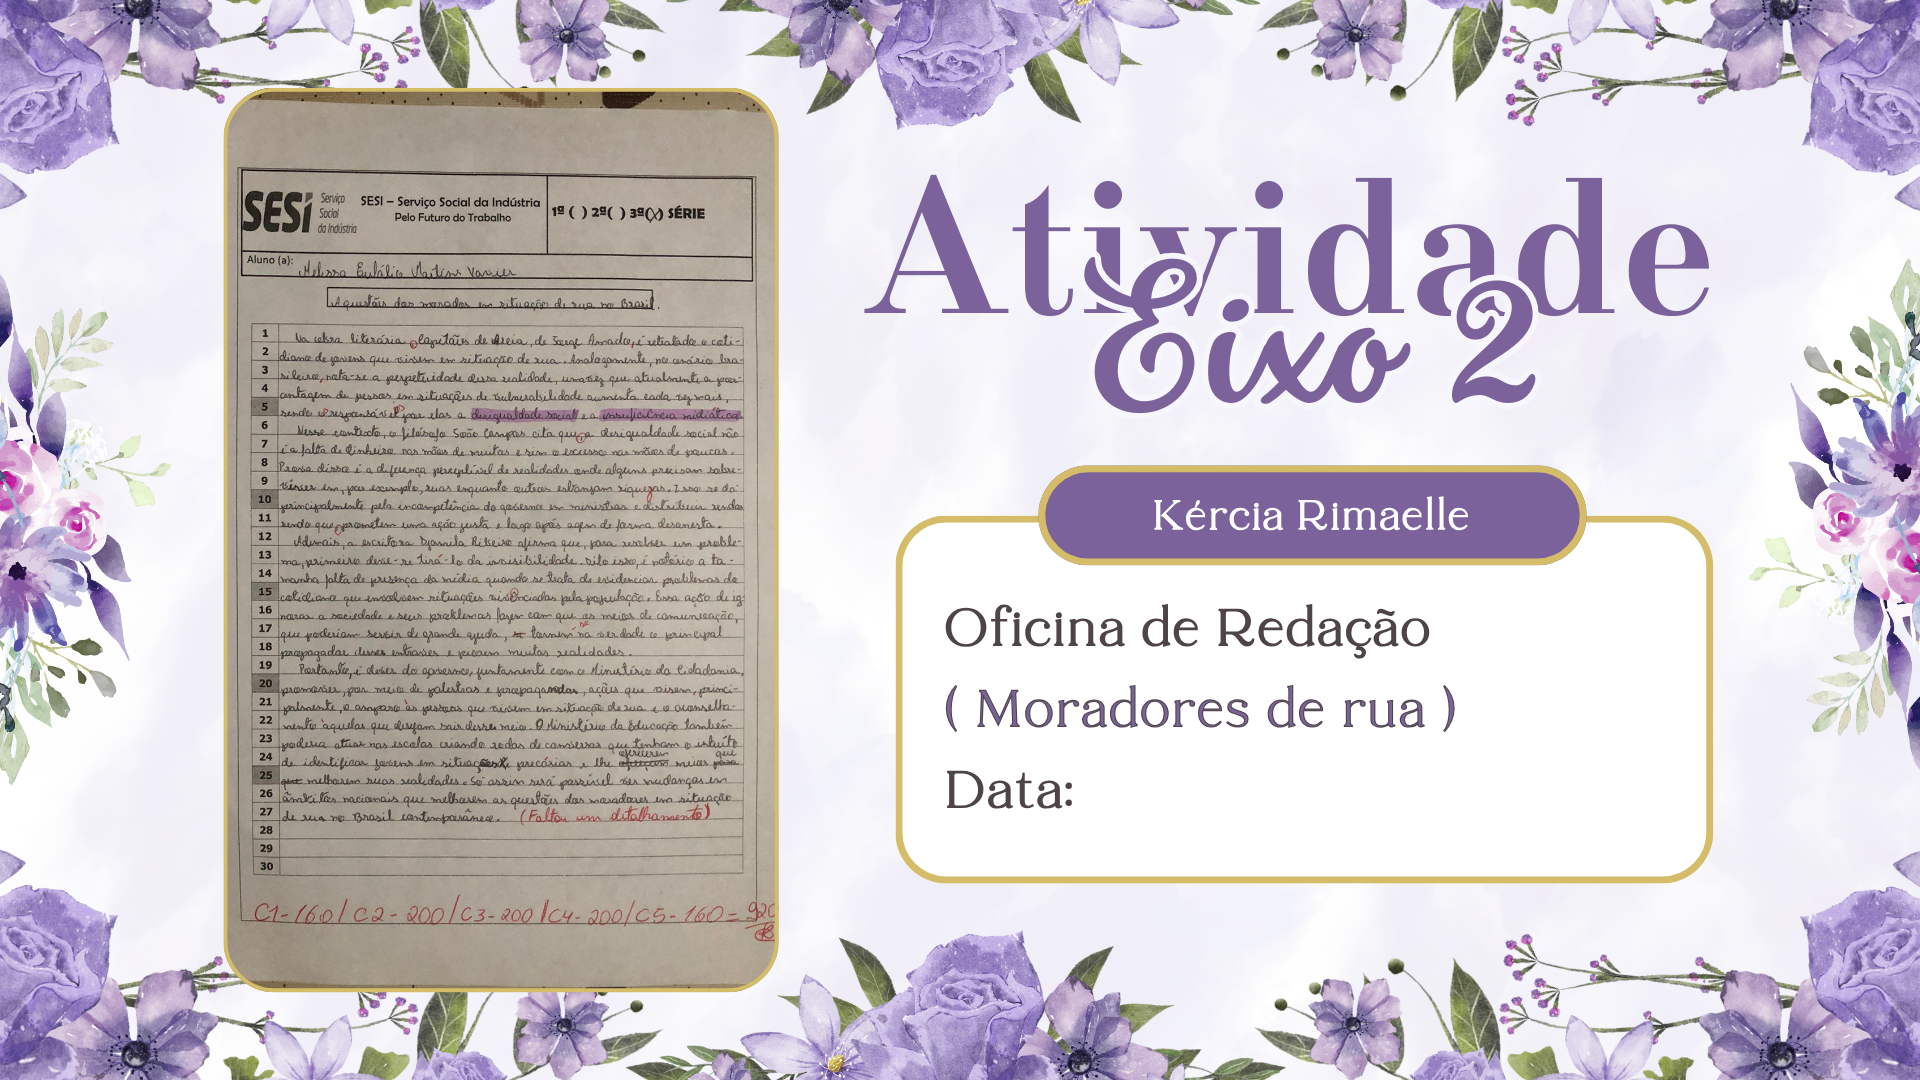 SESI
Serviço
Social
da Indústria
SESI – Serviço Social da Indústria
Pelo Futuro do Trabalho
1ª ( ) 2ª( ) 3ª(X) SÉRIE
Aluno (a): Melissa Eulálio Martins
A questões dos morados em situação de rua no Brasil.
1 Na obra literária Capitães de Areia, de Jorge Amado, é retratado o coti-
2 diano de jovens que vivem em situação de rua. Analogamente, no cenário bra-
3 sileiro, nota-se a perpetuidade dessa realidade, uma vez que atualmente a por-
4 centagem de pessoas em situações de vulnerabilidade aumenta cada vez mais,
5 sendo o responsável por elas a desigualdade social e a insuficiência midiática.
6 Nesse contexto, o filósofo João Campos cita que a desigualdade social não
7 é a falta de dinheiro nas mãos de muitas e sim o excesso nas mãos de poucas.
8 Prova disso é a diferença perceptível de realidades onde alguns precisam sobre-
9 viver em, por exemplo, ruas enquanto outros esbanjam riquezas. Isso se dá
10 principalmente pela incompetência do governo em ministrar e distribuir rendas
11 sendo que prometem uma ação justa e logo após agem de forma desonesta.
12 Ademais, a escritora Djamila Ribeiro afirma que, para resolver um proble-
13 ma, primeiro deve-se tirá-lo da invisibilidade. Dito isso, é notório a ta-
14 manha falta de presença da mídia quando se trata de evidenciar problemas do
15 cotidiano que envolvem situações vivênciadas pela população. Essa ação de ig-
16 norar a sociedade e seus problemas fazem com que os meios de comunicação,
17 que poderiam servir de grande ajuda, se tornem na verdade o principal
18 propagador desses entraves e piorem muitas realidades.
19 Portanto, é dever do governo, juntamente com o Ministério da Cidadania,
20 promover, por meio de palestras e propagandas, ações que visem, princi-
21 palmente, o amparo às pessoas que vivem em situação de rua e o aconselha-
22 mento àquelas que desejam sair desse meio. O Ministério da Educação também
23 poderia atuar nas escolas criando rodas de conversas que tenham o intuito
24 de identificar jovens em situações precárias e lhe oferecerem meios que
25 melhorem suas realidades. Só assim será possível ver mudanças em
26 âmbitos nacionais que melhorem as questões dos moradores em situação
27 de rua no Brasil contemporâneo. (Faltou um detalhamento)
28
29
30
C1-160/C2-200/C3-200/C4-200/C5-160=920
Atividade
Eixo 2
Kércia Rimaelle
Oficina de Redação
( Moradores de rua )
Data: